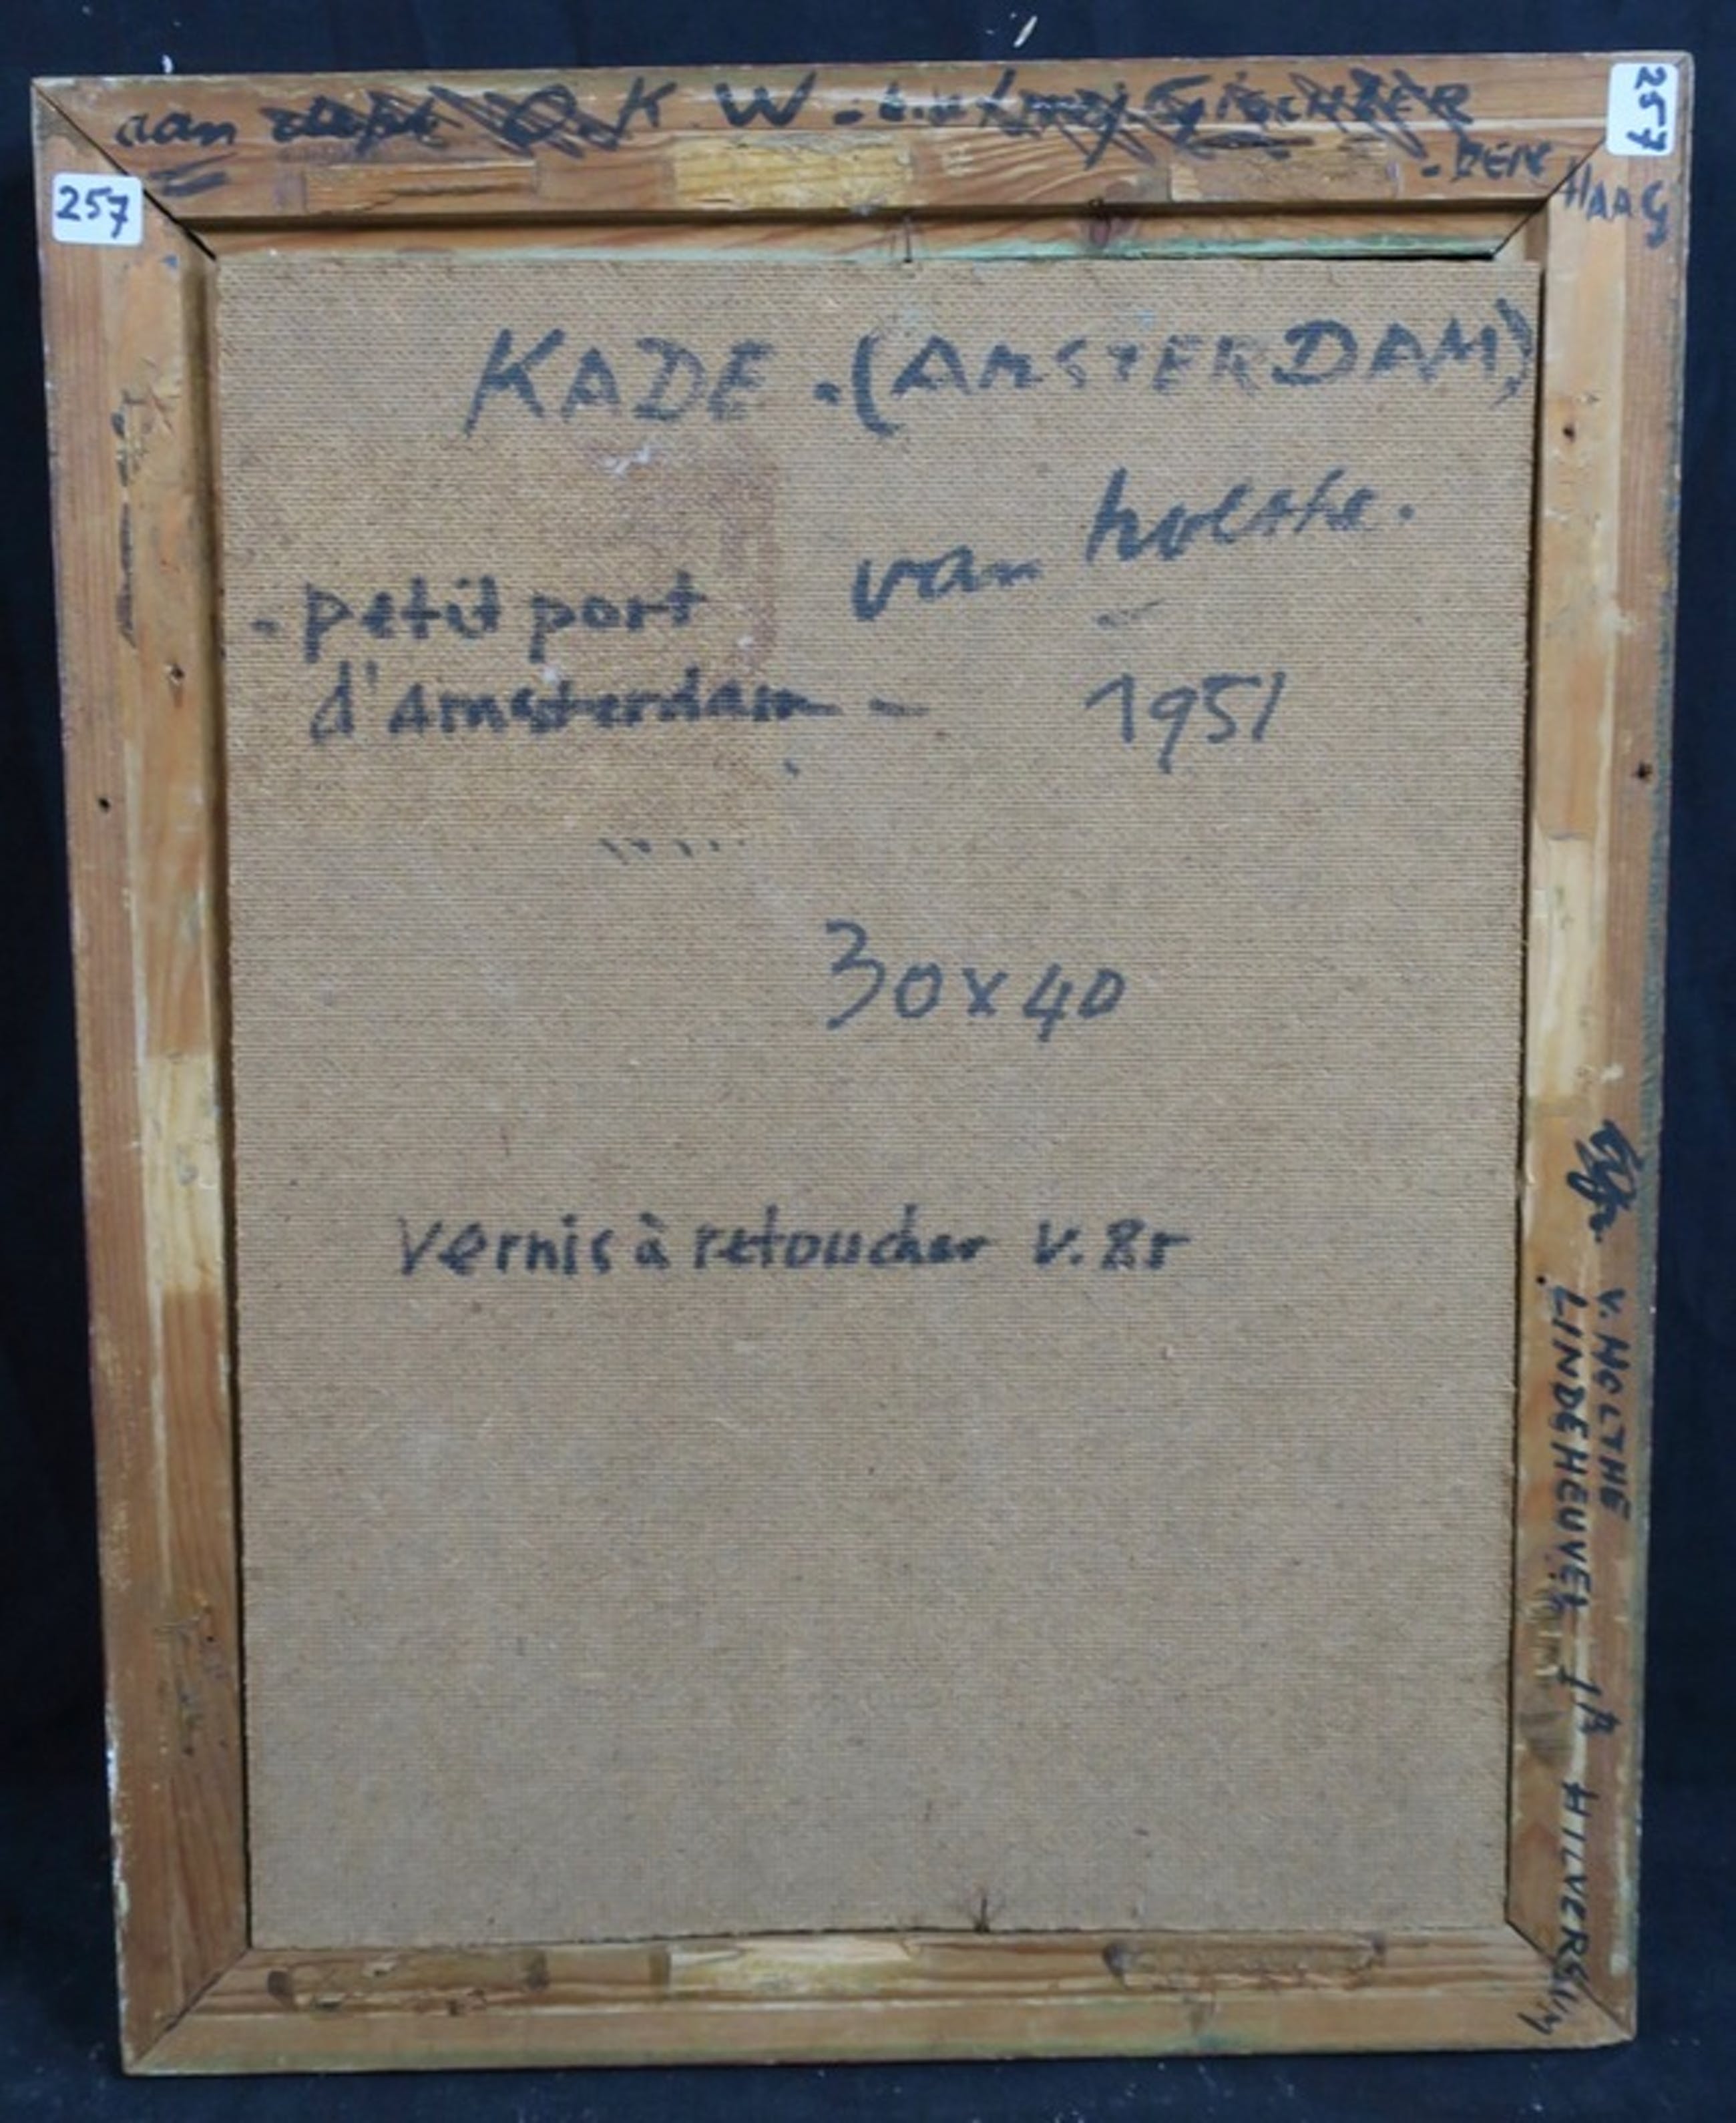 aan O.K W.
- DEN HAAG
257
257
KADE. (AMSTERDAM)
van holthe.
- petit port
d'amsterdam -
1951
30x40
vernis à retoucher v.
V. HOLTHE
LINDEHEUVEL
HILVERSUM